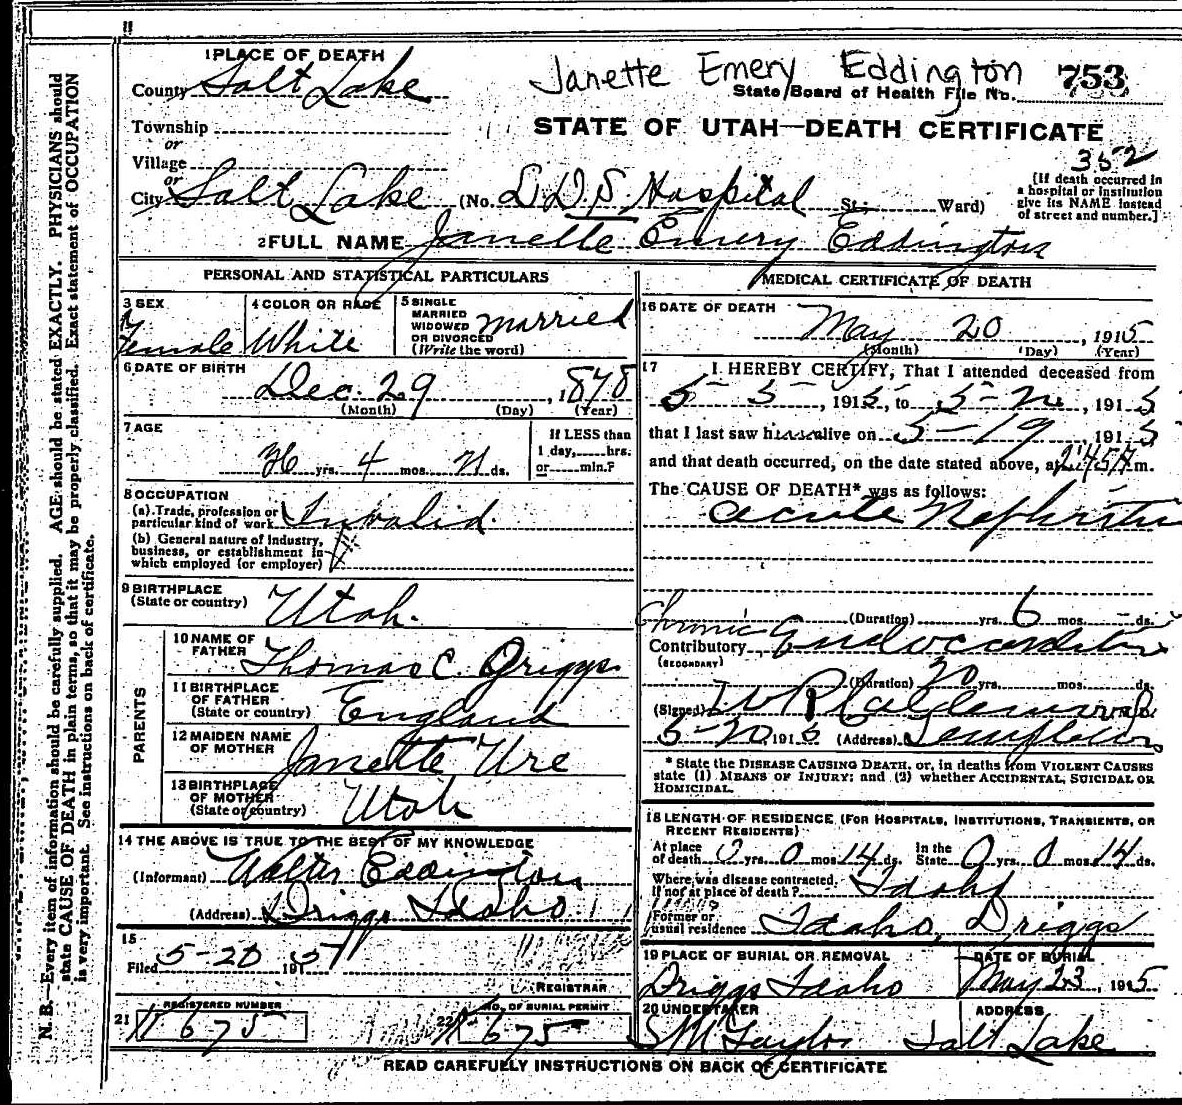 1 PLACE OF DEATH
County Salt Lake
Janette Emery Eddington 753
State Board of Health File No.
Township
or
STATE OF UTAH—DEATH CERTIFICATE
Village
or
352
City Salt Lake (No. L.D.S. Hospital St.; Ward)
[If death occurred in
a hospital or institution
give its NAME instead
of street and number.]
2 FULL NAME Janette Emery Eddington
PERSONAL AND STATISTICAL PARTICULARS
3 SEX
Female
4 COLOR OR RACE
White
5 SINGLE
MARRIED
WIDOWED
OR DIVORCED
(Write the word)
Married
6 DATE OF BIRTH
Dec. 29, 1878
(Month) (Day) (Year)
7 AGE
36 yrs. 4 mos. 21 ds.
If LESS than
1 day, hrs.
or min.?
8 OCCUPATION
(a) Trade, profession or
particular kind of work Invalid.
(b) General nature of industry,
business, or establishment in
which employed (or employer)
9 BIRTHPLACE
(State or country) Utah.
PARENTS
10 NAME OF
FATHER Thomas C. Griggs
11 BIRTHPLACE
OF FATHER
(State or country) England
12 MAIDEN NAME
OF MOTHER Janette Ure
13 BIRTHPLACE
OF MOTHER
(State or country) Utah
14 THE ABOVE IS TRUE TO THE BEST OF MY KNOWLEDGE
(Informant) Walter Eddington
(Address) Driggs Idaho
15
Filed 5-20 1915
REGISTRAR
21 REGISTERED NUMBER
675
22 NO. OF BURIAL PERMIT
675
MEDICAL CERTIFICATE OF DEATH
16 DATE OF DEATH
May 20, 1915
(Month) (Day) (Year)
17 I HEREBY CERTIFY, That I attended deceased from
5-5-, 1915, to 5-20, 1915
that I last saw h alive on 5-19 1915
and that death occurred, on the date stated above, at 2:45 A m.
The CAUSE OF DEATH* was as follows:
acute Nephritis
(Duration) yrs. 6 mos. ds.
Chronic
Contributory Endocarditis
(SECONDARY)
(Duration) 20 yrs. mos. ds.
(Signed)
5-20, 1915 (Address)
* State the DISEASE CAUSING DEATH, or, in deaths from VIOLENT CAUSES
state (1) MEANS OF INJURY; and (2) whether ACCIDENTAL, SUICIDAL OR
HOMICIDAL.
18 LENGTH OF RESIDENCE (FOR HOSPITALS, INSTITUTIONS, TRANSIENTS, OR
RECENT RESIDENTS)
At place
of death 0 yrs. 0 mos. 14 ds.
In the
State 0 yrs. 0 mos. 14 ds.
Where was disease contracted,
If not at place of death? Idaho
Former or
usual residence Idaho, Driggs
19 PLACE OF BURIAL OR REMOVAL
Driggs Idaho
DATE OF BURIAL
May 23, 1915
20 UNDERTAKER
S M Taylor
ADDRESS
Salt Lake
READ CAREFULLY INSTRUCTIONS ON BACK OF CERTIFICATE
N. B.—Every item of information should be carefully supplied. AGE should be stated EXACTLY. PHYSICIANS should
state CAUSE OF DEATH in plain terms, so that it may be properly classified. Exact statement of OCCUPATION
is very important. See instructions on back of certificate.